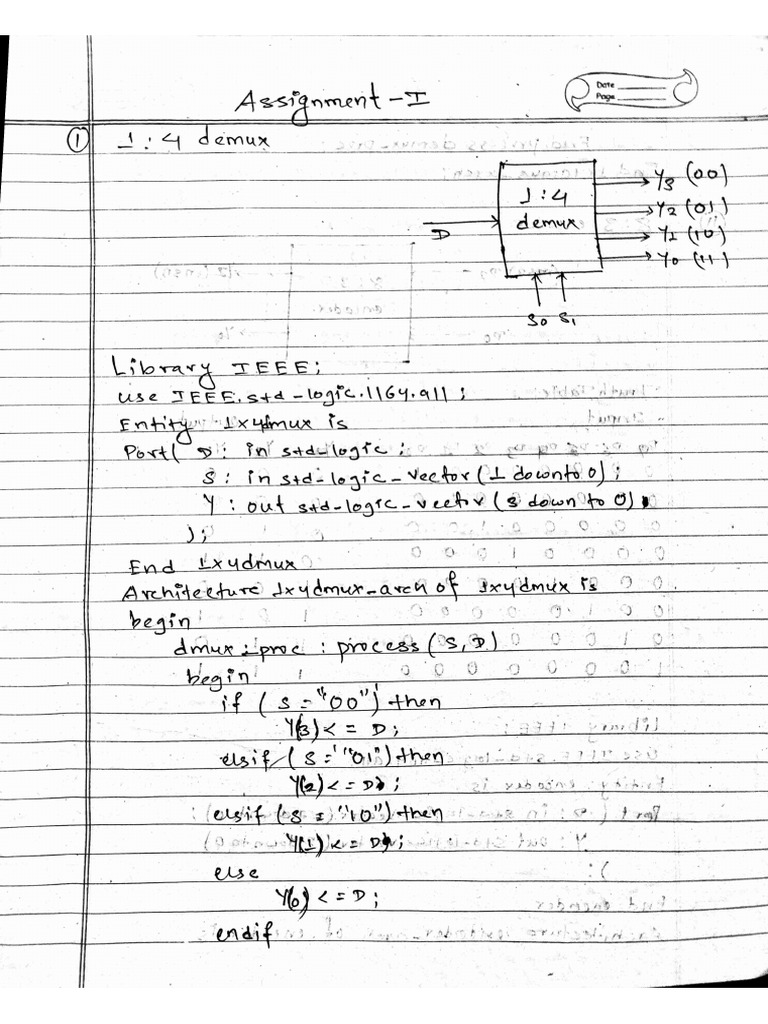 Assignment-I
Date
Page
① 1:4 demux
1:4
demux
D
Y3 (00)
Y2 (01)
Y1 (10)
Y0 (11)
S0 S1
Library IEEE;
use IEEE.std-logic.1164.all;
Entity 1x4dmux is
Port( D: in std-logic;
S: in std-logic-vector(1 downto 0);
Y: out std-logic-vector(3 down to 0)
);
End 1x4dmux
Architecture 1x4dmux-arch of 1x4dmux is
begin
dmux:proc : process(S,D)
begin
if (S="00") then
Y(3)<= D;
elsif (S="01") then
Y(2)<= D;
elsif (S="10") then
Y(1)<= D;
else
Y(0)<= D;
endif